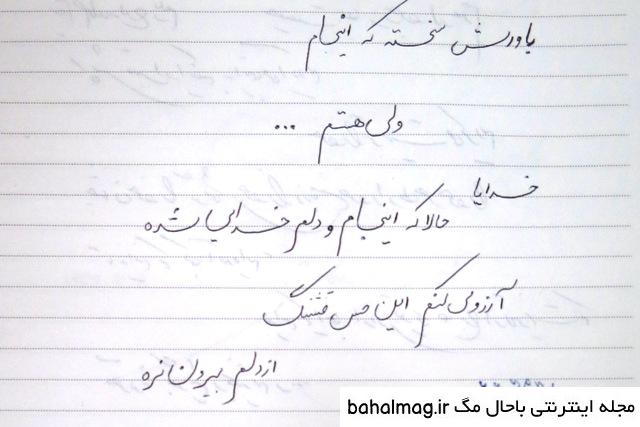 باورش سخته که اینجام
ولی هستم ...
خدایا
حالا که اینجام و دلم خدایی شده
آرزو می کنم این حس قشنگ
از دلم بیرون نره
مجله اینترنتی باحال مگ bahalmag.ir